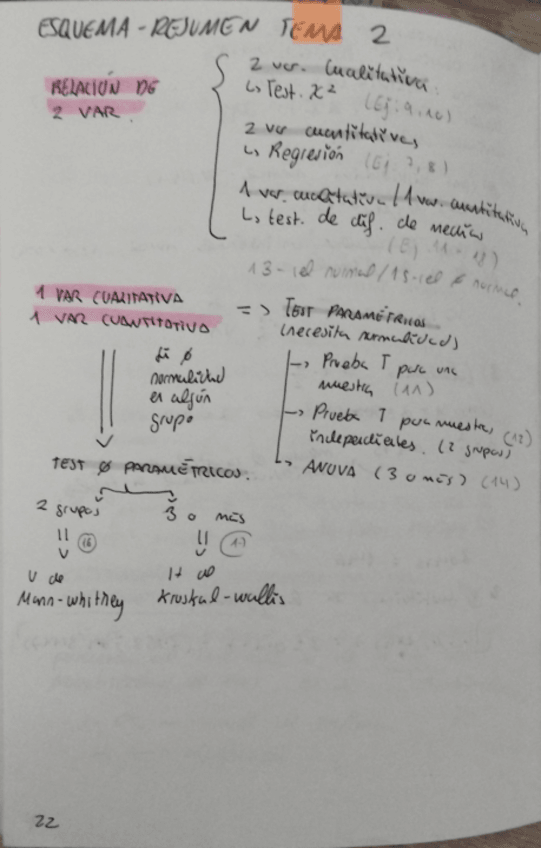 ESQUEMA-RESUMEN TEMA 2
RELACIÓN DE
2 VAR.
2 var. cualitativa
↳ Test. χ²
(Ej. 9, 10)
2 var cuantitativas
↳ Regresión (Ej. 7, 8)
1 var. cualitativa / 1 var. cuantitativa
↳ test. de dif. de medias
(Ej 11 - 12)
13 - rel normal / 15 - rel ≠ normal.
1 VAR CUALITATIVA
1 VAR CUANTITATIVA
=> TEST PARAMÉTRICOS
(necesita normalidad)
→ Prueba T para una
muestra (11)
→ Prueba T para muestras (12)
independientes. (2 grupos)
→ ANOVA (3 o más) (14)
Si Ø
normalidad
en algún
grupo
TEST Ø PARAMÉTRICOS.
2 grupos 3 o más
(16) (17)
U de
Mann-Whitney
H de
Kruskal-Wallis
22